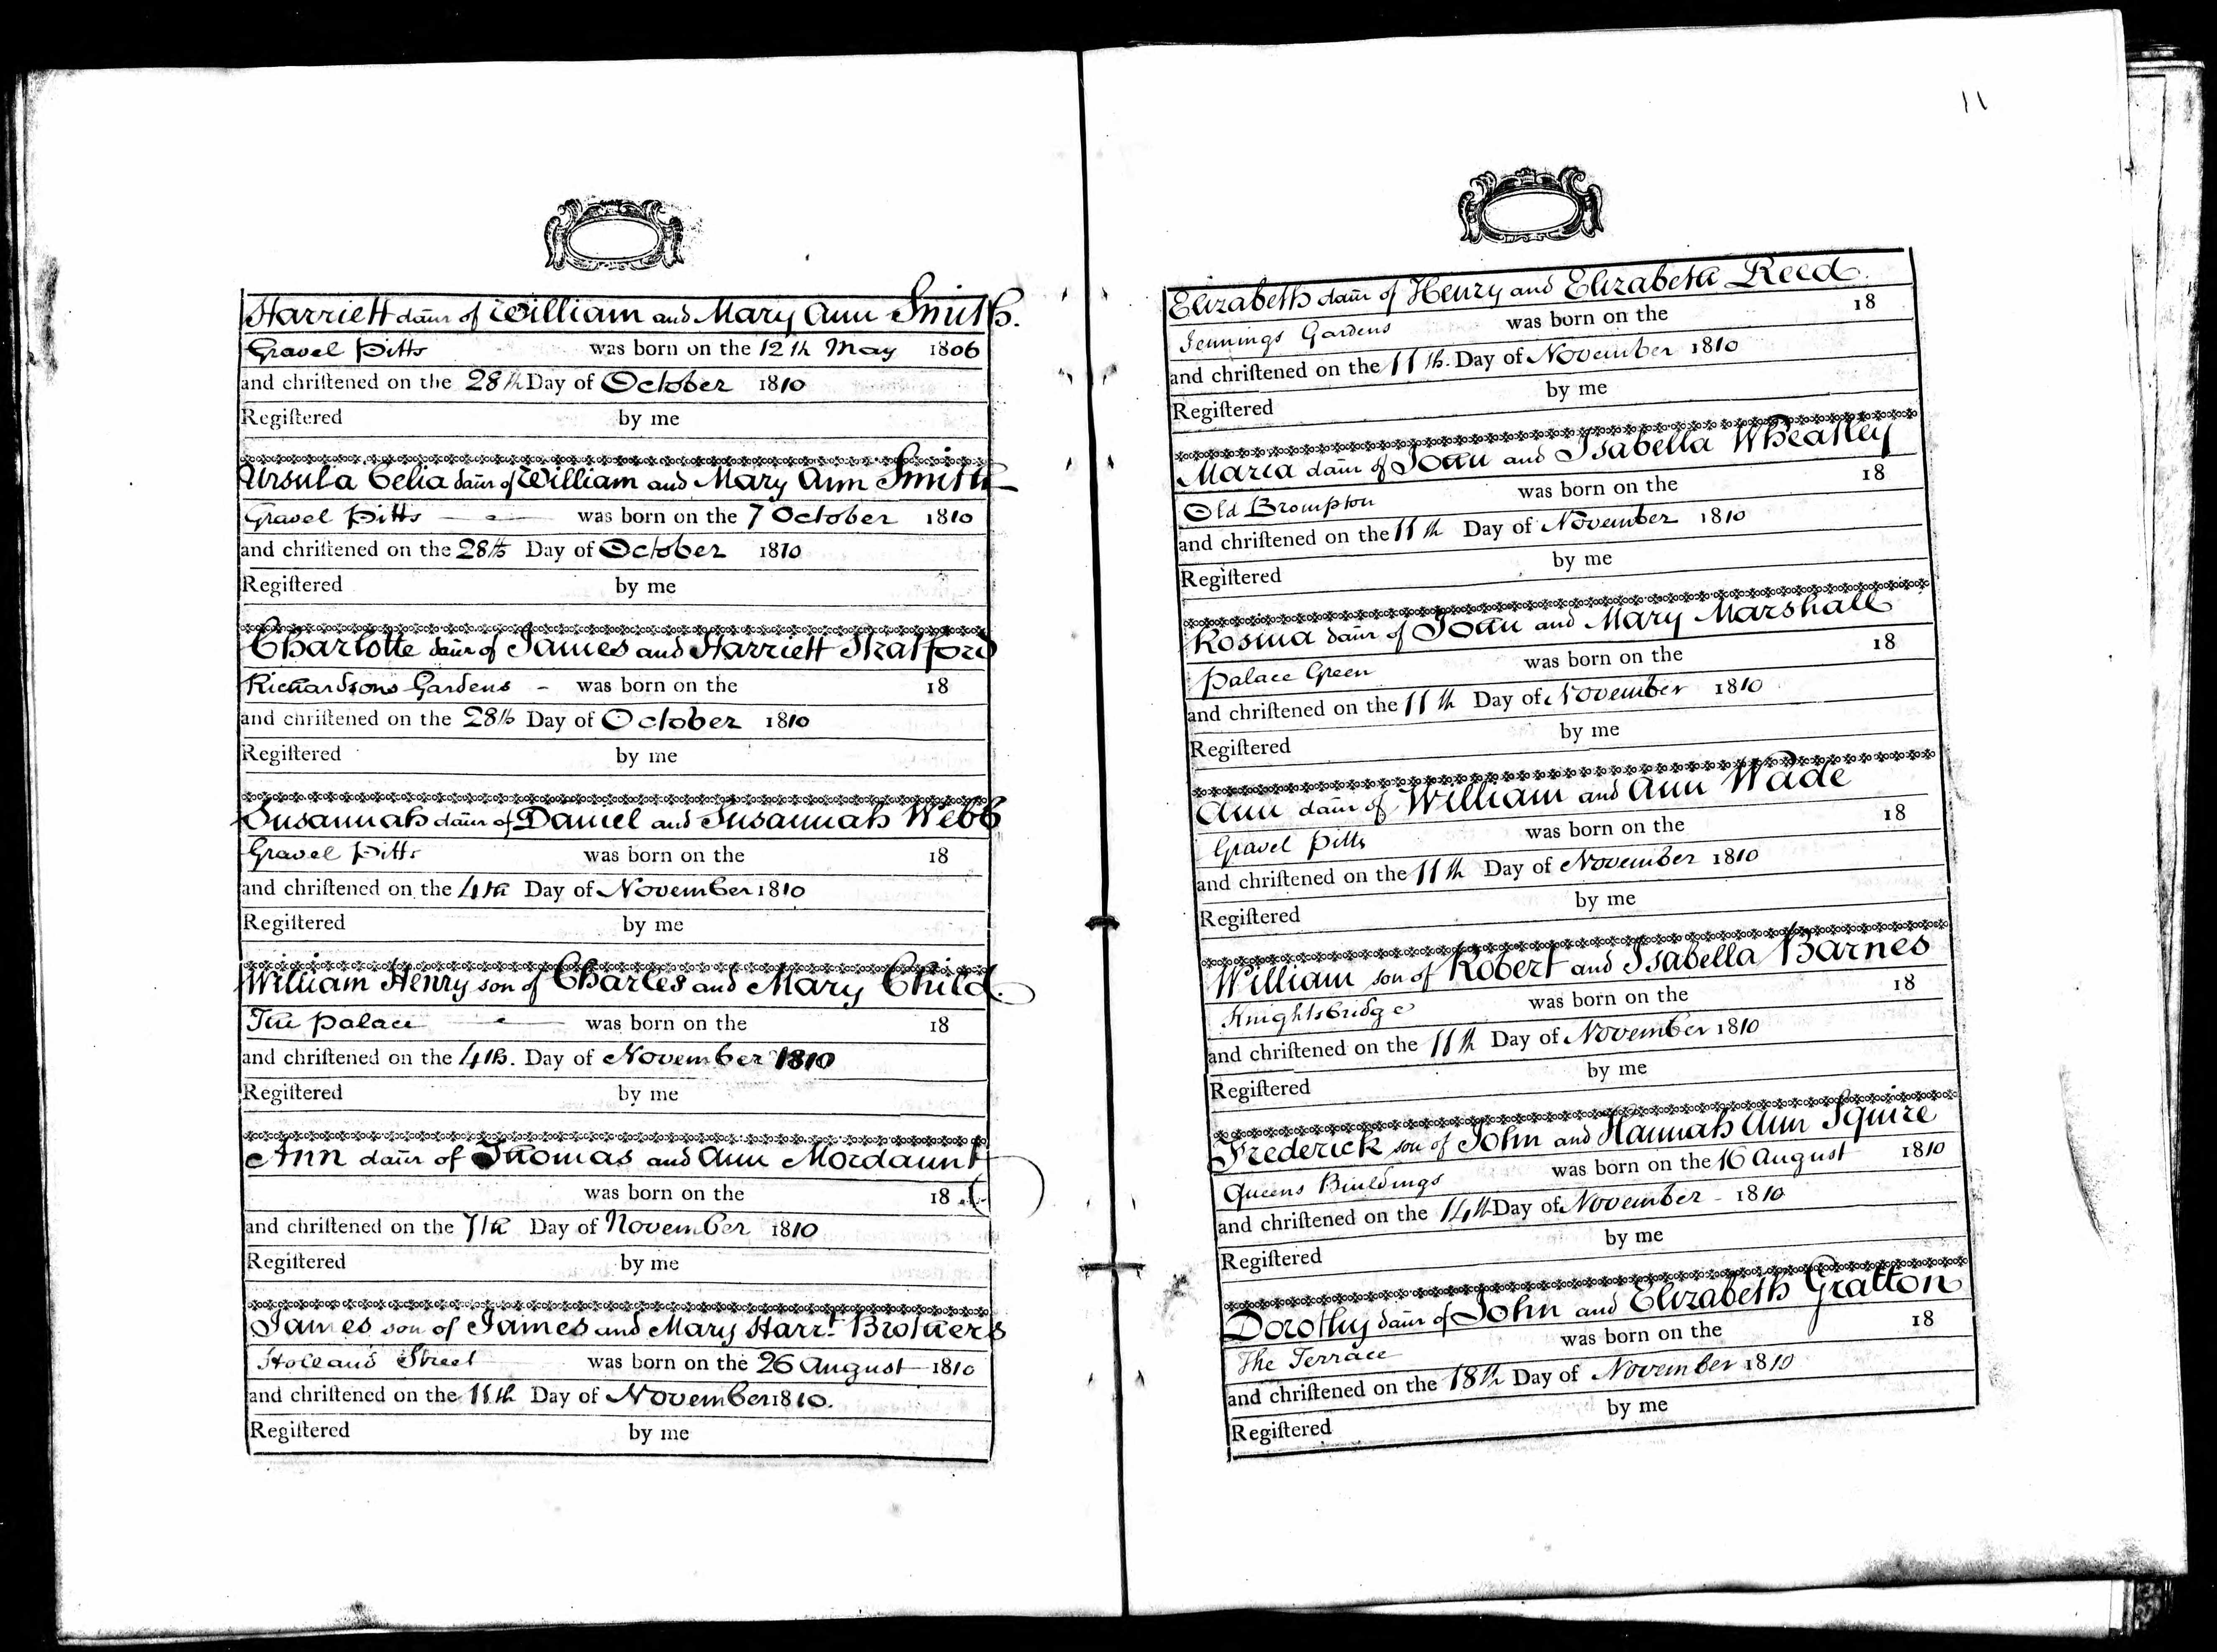 Harriett daur of William and Mary Ann Smith.
Gravel Pitts was born on the 12th May 1806
and chriſtened on the 28th Day of October 1810
Regiſtered by me
Ursula Celia daur of William and Mary Ann Smith
Gravel Pitts — was born on the 7 October 1810
and chriſtened on the 28th Day of October 1810
Regiſtered by me
Charlotte daur of James and Harriett Stratford
Richardsons Gardens - was born on the 18
and chriſtened on the 28th Day of October 1810
Regiſtered by me
Susannah daur of Daniel and Susannah Webb
Gravel Pitts was born on the 18
and chriſtened on the 4th Day of November 1810
Regiſtered by me
William Henry son of Charles and Mary Child.
The Palace — was born on the 18
and chriſtened on the 4th. Day of November 1810
Regiſtered by me
Ann daur of Thomas and Ann Mordaunt
was born on the 18
and chriſtened on the 7th Day of November 1810
Regiſtered by me
James son of James and Mary Harrt. Brothers
Holland Street was born on the 26 August 1810
and chriſtened on the 11th Day of November 1810.
Regiſtered by me
11
Elizabeth daur of Henry and Elizabeth Reed.
Jennings Gardens was born on the 18
and chriſtened on the 11th. Day of November 1810
Regiſtered by me
Maria daur of John and Isabella Wheatley
Old Brompton was born on the 18
and chriſtened on the 11th Day of November 1810
Regiſtered by me
Rosina daur of John and Mary Marshall
Palace Green was born on the 18
and chriſtened on the 11th Day of November 1810
Regiſtered by me
Ann daur of William and Ann Wade
Gravel Pitts was born on the 18
and chriſtened on the 11th Day of November 1810
Regiſtered by me
William son of Robert and Isabella Barnes
Knightsbridge was born on the 18
and chriſtened on the 11th Day of November 1810
Regiſtered by me
Frederick son of John and Hannah Ann Squire
Queens Buildings was born on the 16 August 1810
and chriſtened on the 14th Day of November - 1810
Regiſtered by me
Dorothy daur of John and Elizabeth Gratton
The Terrace was born on the 18
and chriſtened on the 18th Day of November 1810
Regiſtered by me